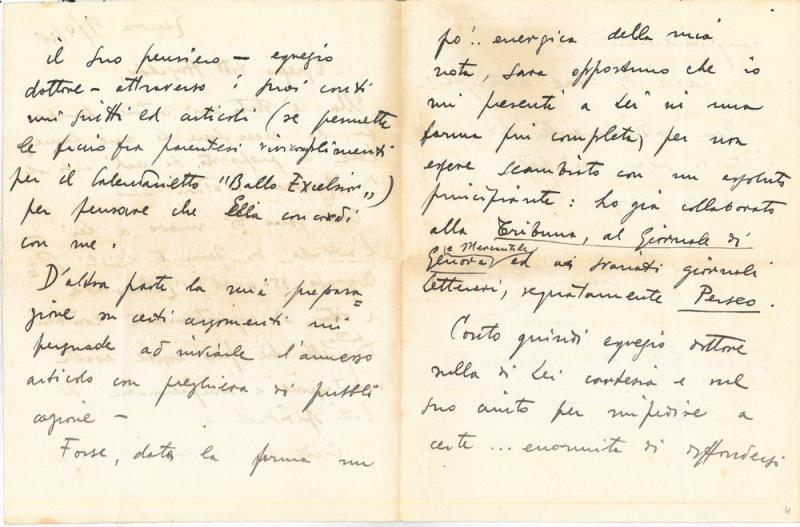 il suo pensiero – egregio
dottore – attraverso i suoi
scritti ed articoli (se permette
le faccio fra parentesi vivi complimenti
per il Calendarietto "Ballo Excelsior")
per pensare che Ella concordi
con me.
D'altra parte la mia prepara=
zione su certi argomenti mi
persuade ad inviarle l'annesso
articolo con preghiera di pubbli
cazione –
Forse, data la forma un
po'.. energica della mia
nota, sara opportuno che io
mi presenti a Lei in una
forma più completa, per non
essere scambiato con un assoluto
principiante: ho già collaborato
alla Tribuna, al Giornale di
Genova e Mercantile ed ai svariati giornali
letterari, segnatamente Perseo.
Conto quindi egregio dottore
sulla di Lei cortesia e sul
suo aiuto per impedire a
certe ... enormita di diffondersi